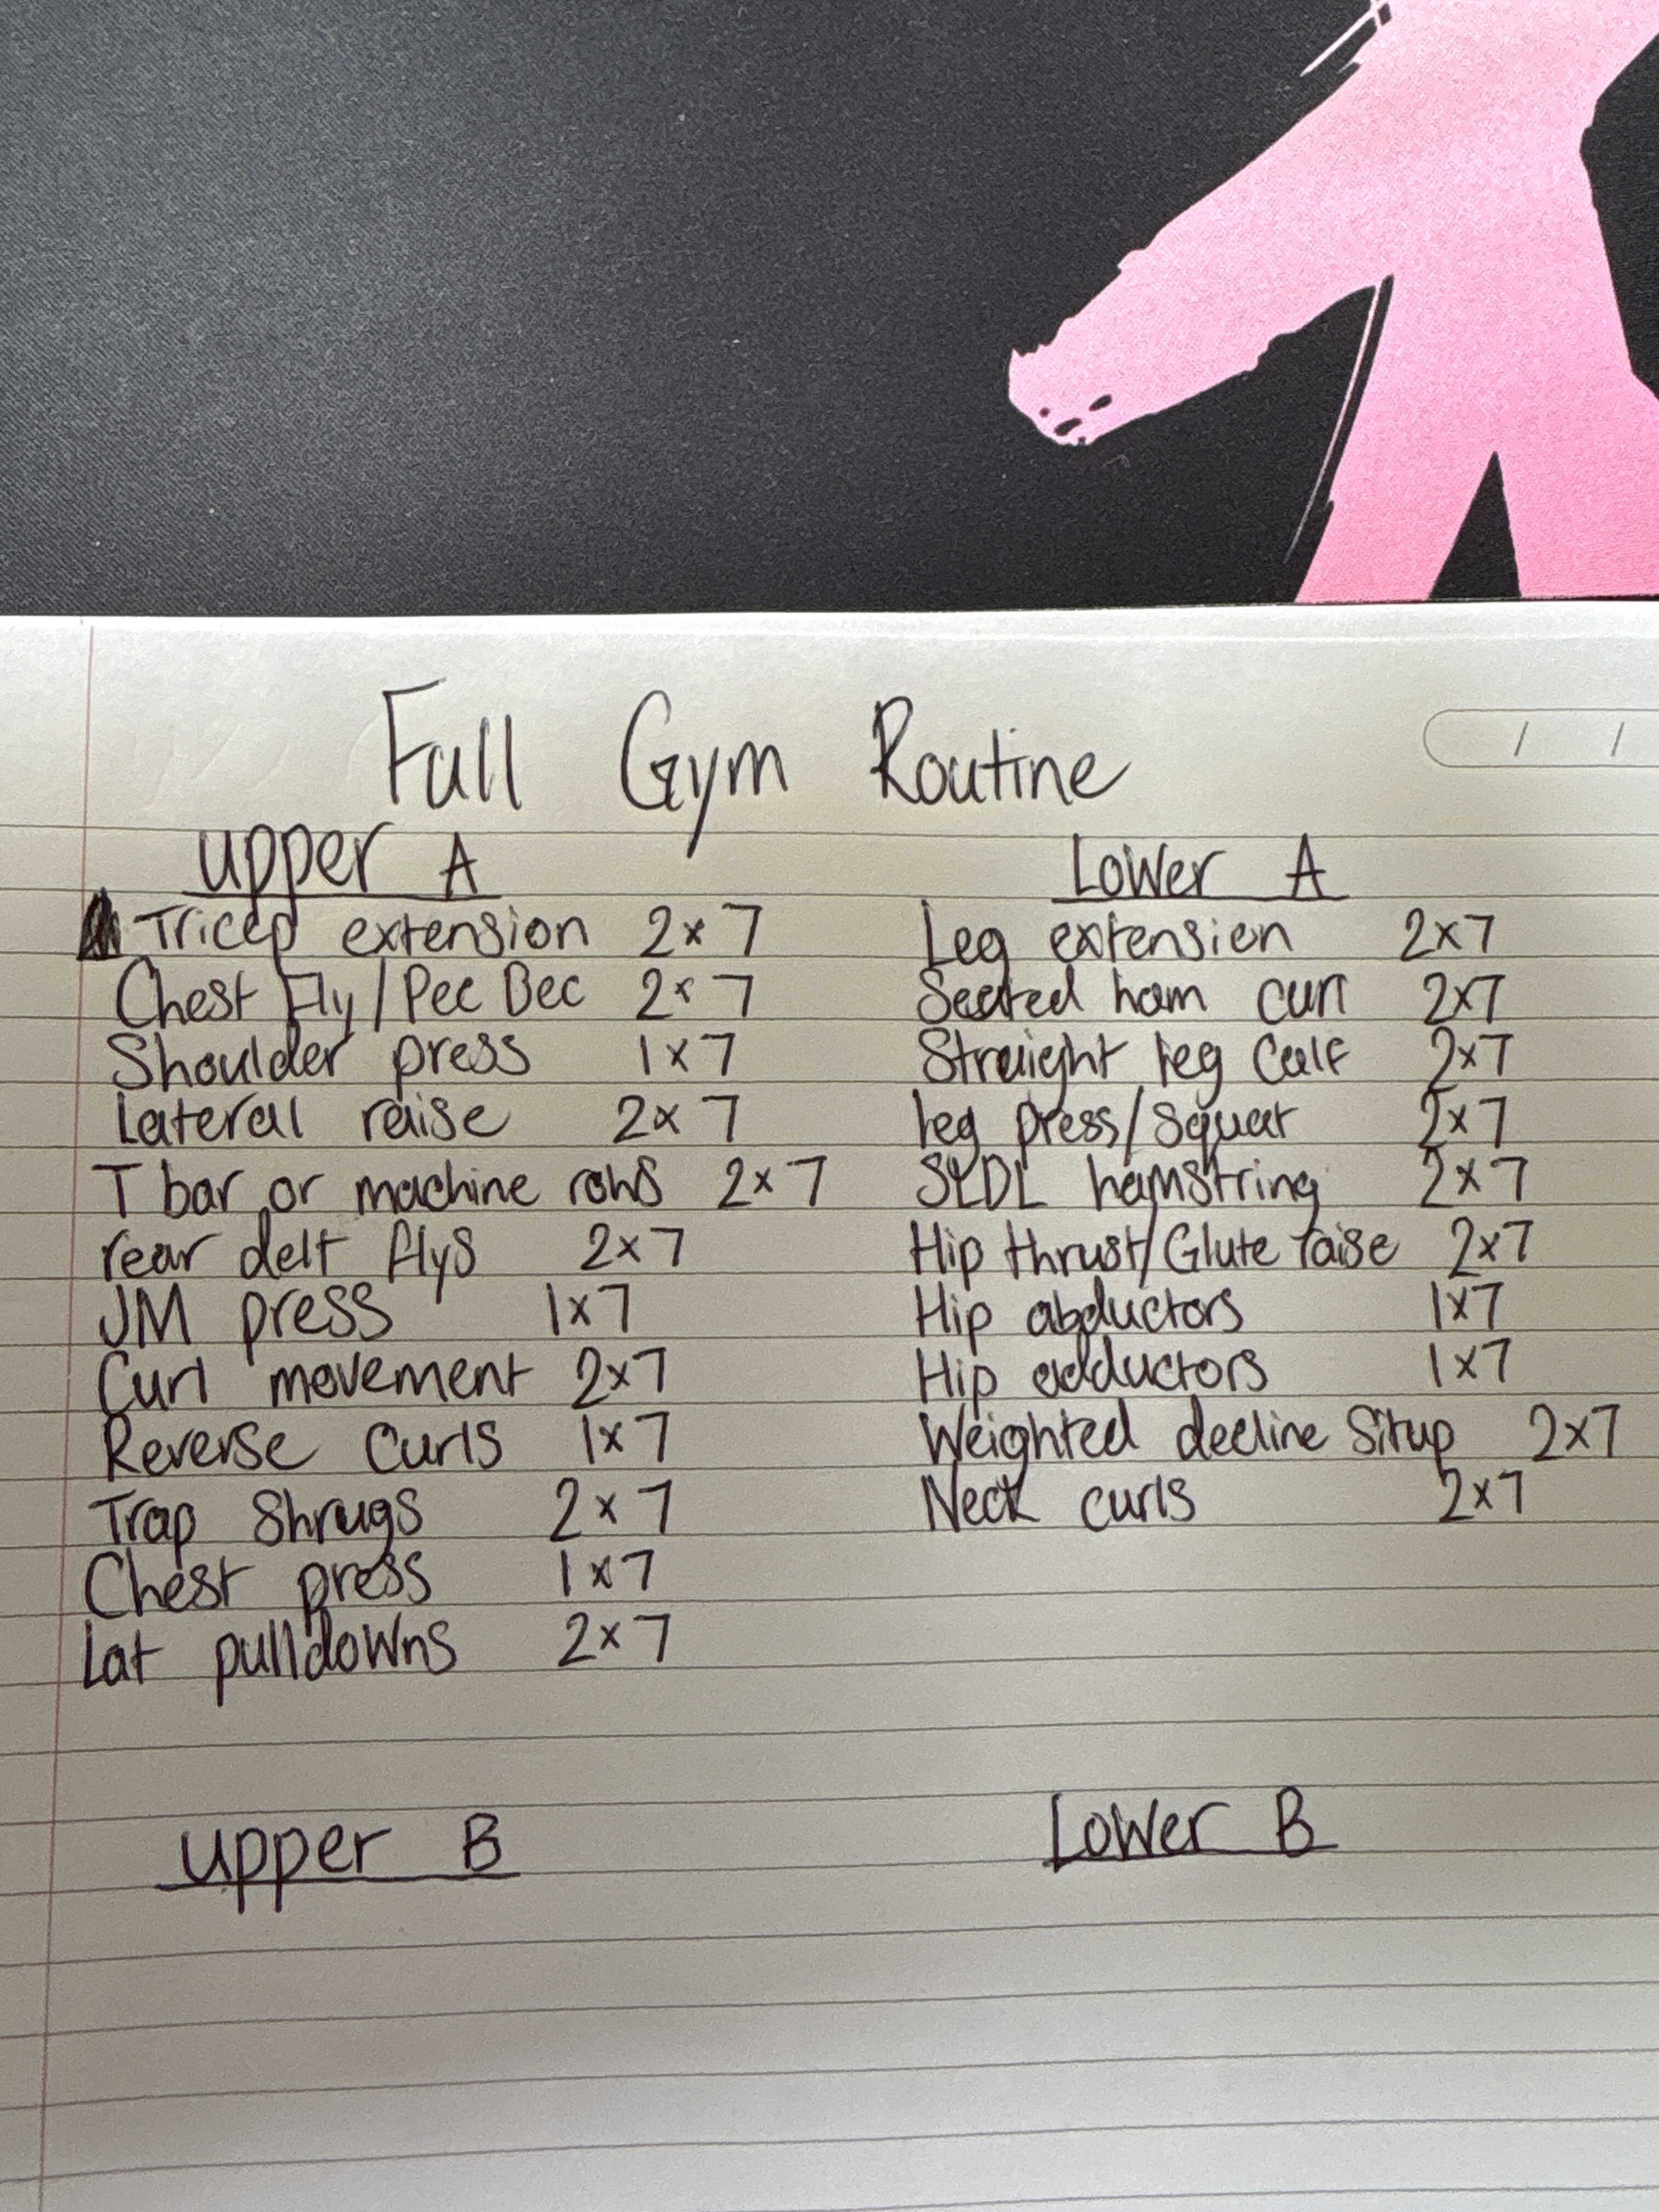 Full Gym Routine
Upper A
Tricep extension 2x7
Chest Fly/Pec Dec 2x7
Shoulder press 1x7
Lateral raise 2x7
T bar or machine rows 2x7
rear delt flys 2x7
JM press 1x7
Curl movement 2x7
Reverse Curls 1x7
Trap Shrugs 2x7
Chest press 1x7
Lat pulldowns 2x7
Lower A
Leg extension 2x7
Seated ham curl 2x7
Straight leg Calf 2x7
leg press/Squat 2x7
SLDL hamstring 2x7
Hip thrust/Glute raise 2x7
Hip abductors 1x7
Hip adductors 1x7
Weighted decline Situp 2x7
Neck curls 2x7
Upper B
Lower B